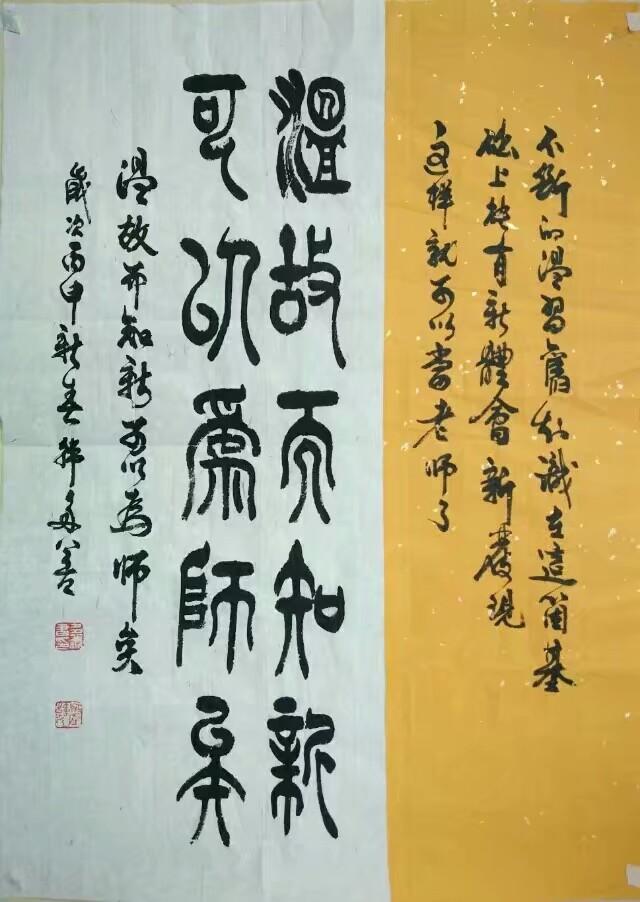 不斷的溫習舊知識在這箇基
礎上能有新體會新發現
这样就可以当老师了
溫故而知新
可以為師矣
温故而知新可以为师矣
歲次丙申新春